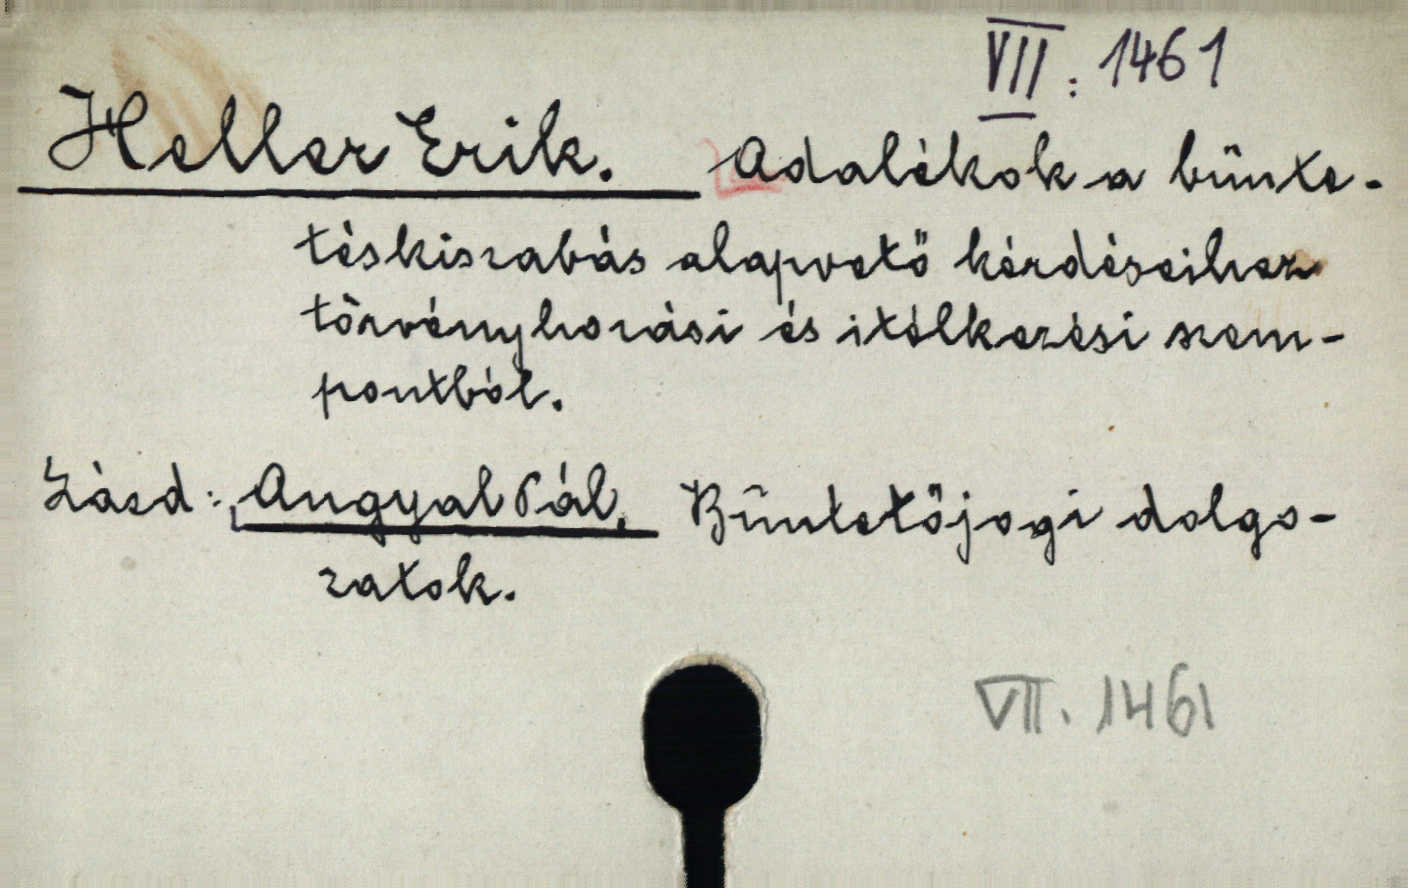 VII: 1461
Heller Erik. Adalékok a bünte-
téskiszabás alapvető kérdéseihez
törvényhozási és itélkezési szem-
pontból.
Lásd: Angyal Pál, Büntetőjogi dolgo-
zatok.
VII. 1461